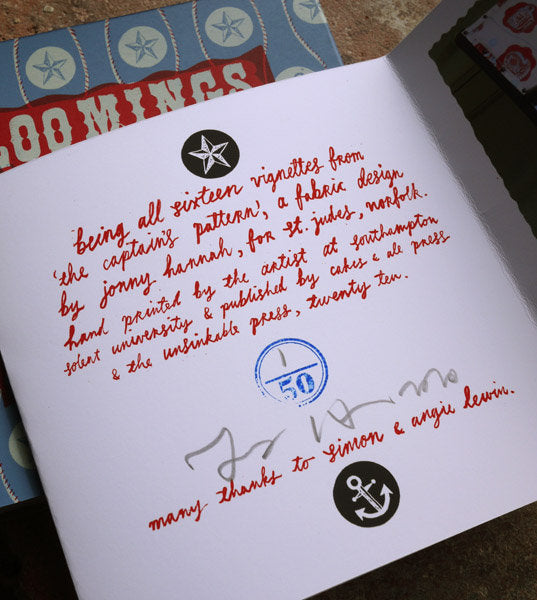 LOOMINGS
being all sixteen vignettes from
'the captain's pattern', a fabric design
by jonny hannah, for st. judes, norfolk.
hand printed by the artist at southampton
solent university & published by cakes & ale press
& the unsinkable press, twenty ten.
1
50
many thanks to simon & angie lewin.